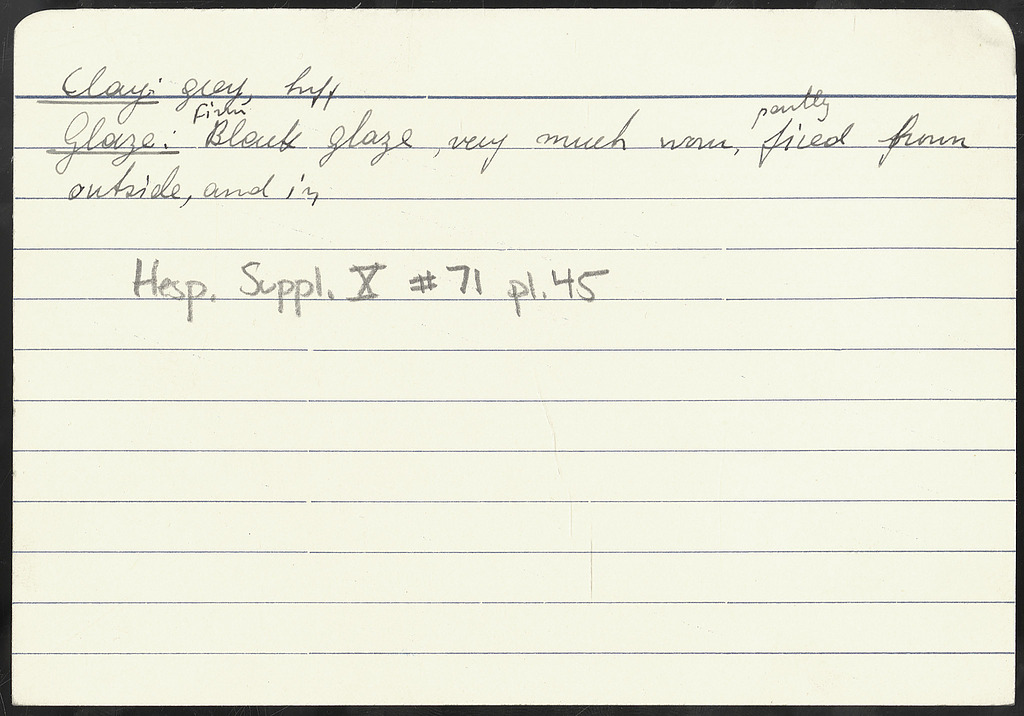 Clay: grey, buff
Glaze: Firm Black glaze, very much worn, partly fired brown
outside, and in
Hesp. Suppl. X #71 pl. 45